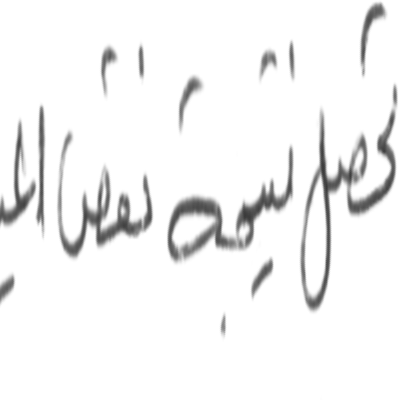 تحصل نتيجة نقص